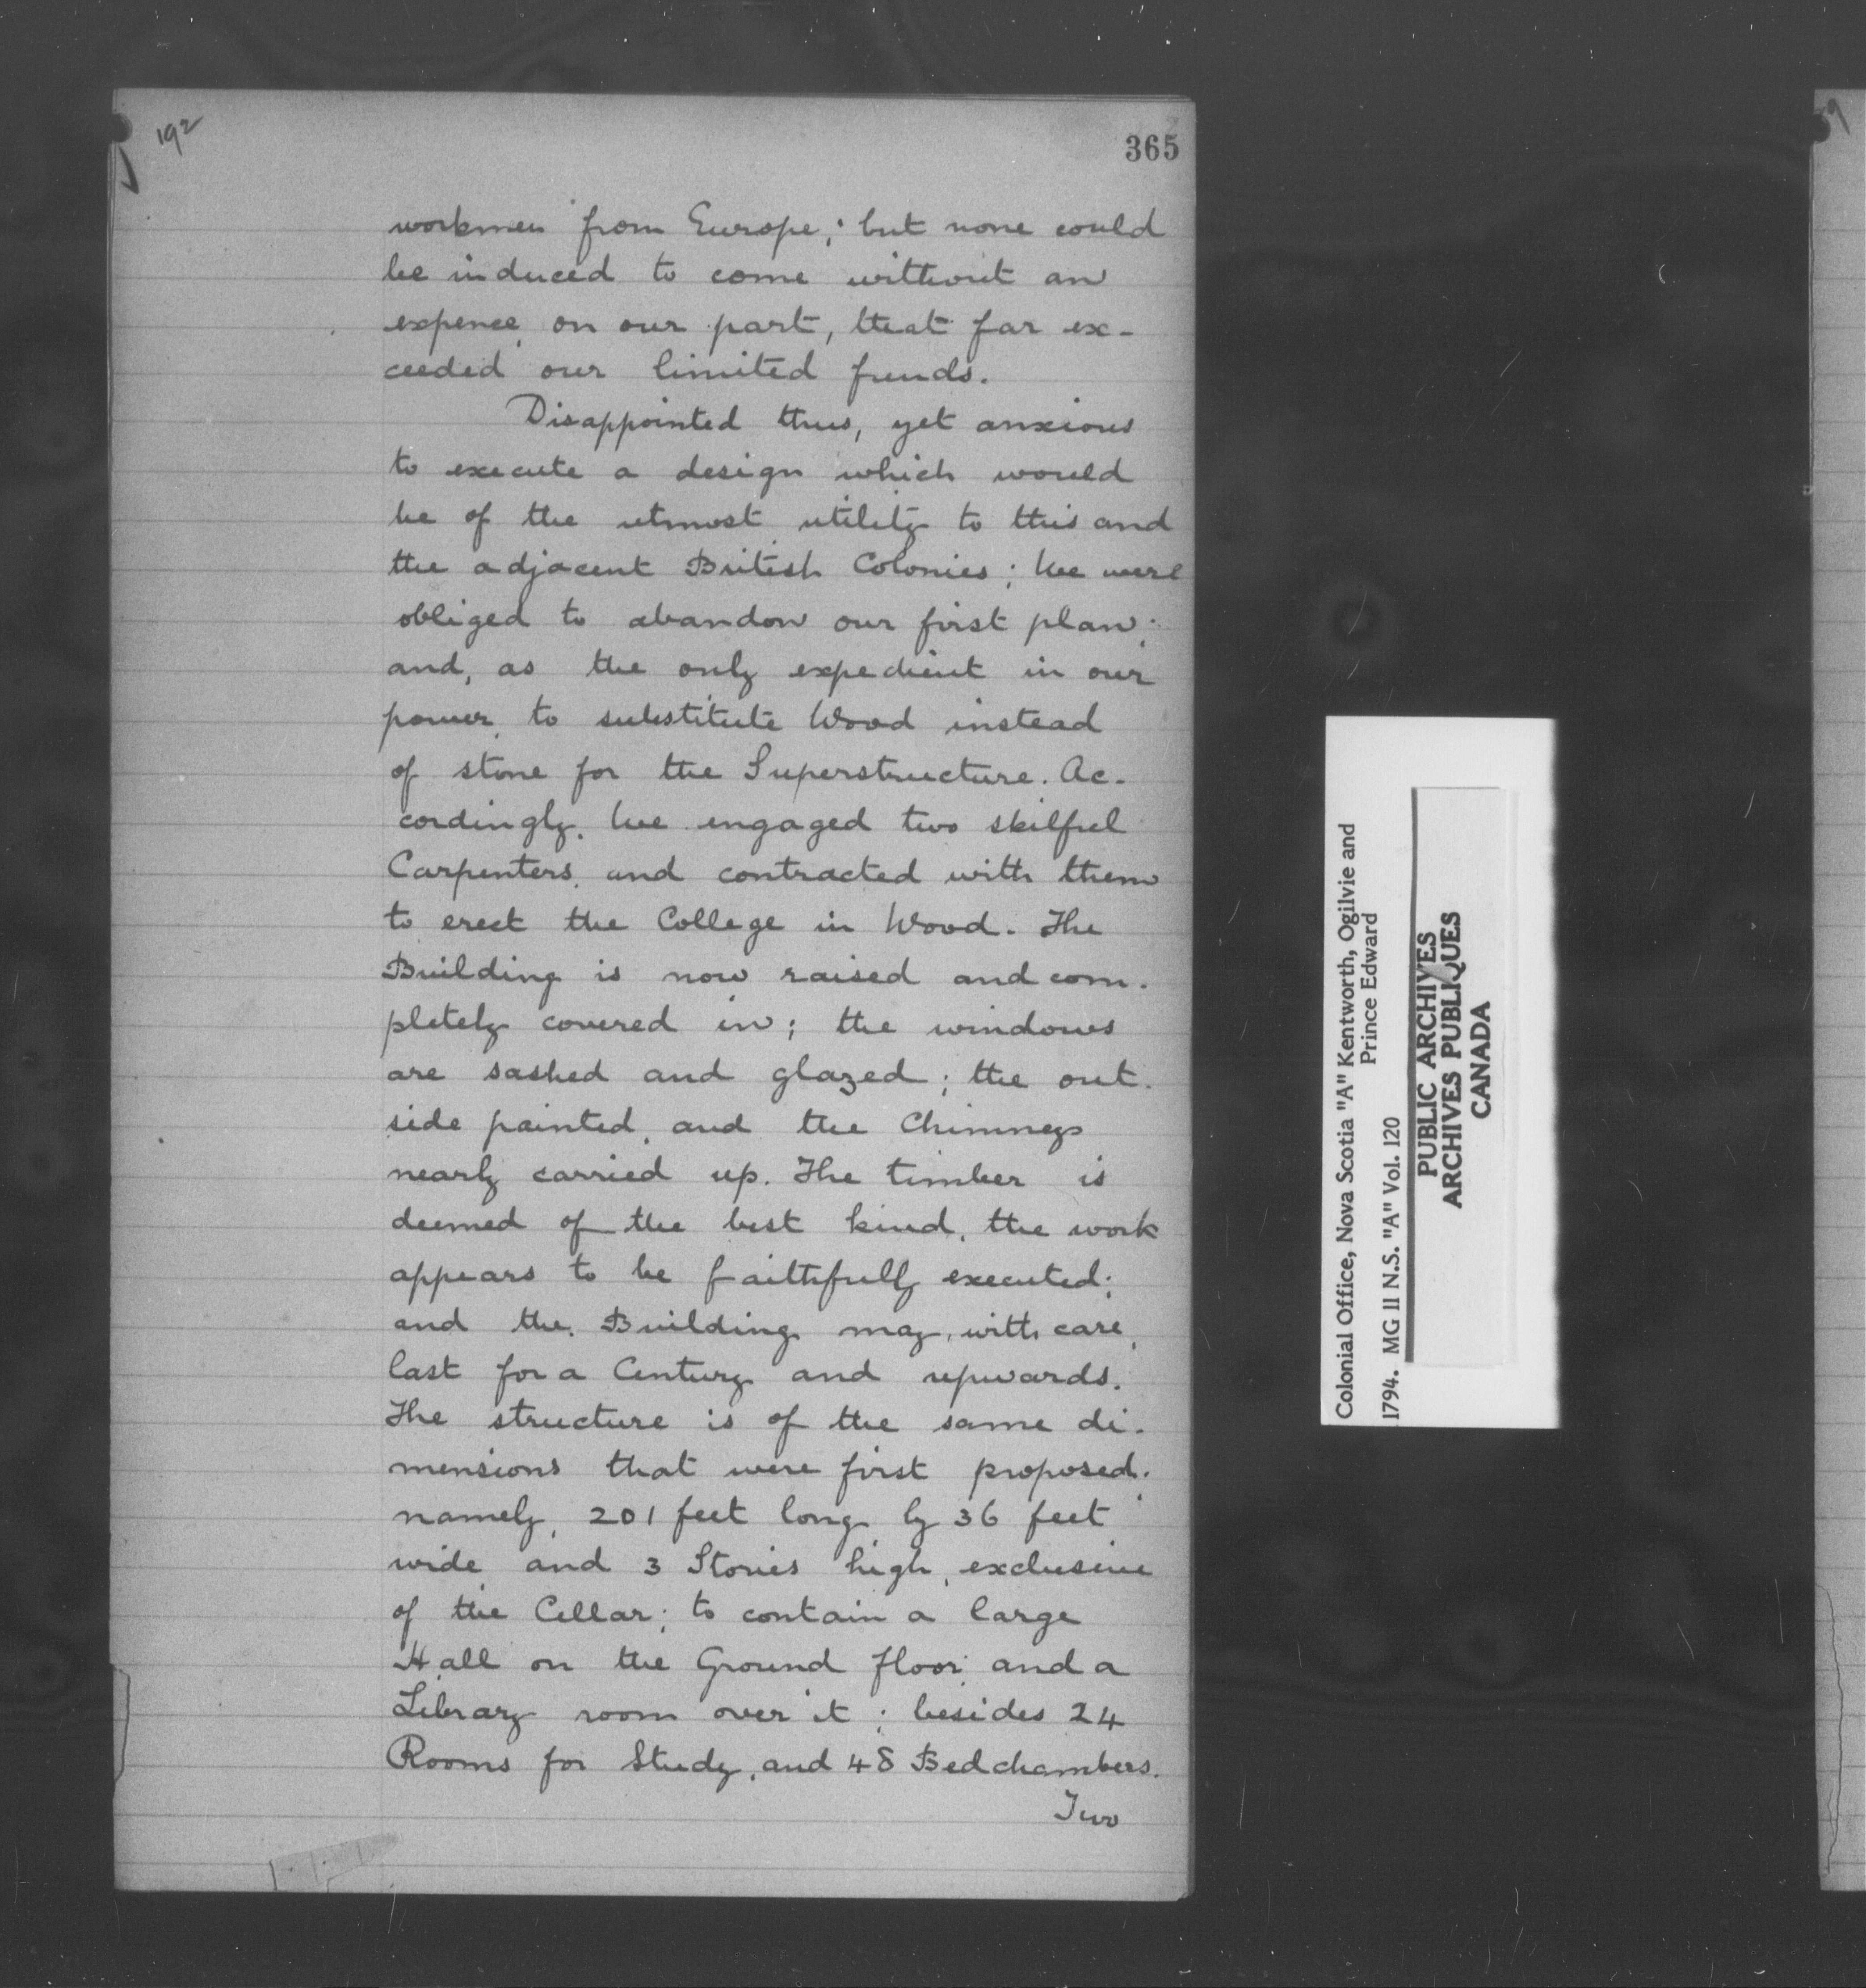 192
365
workmen from Europe; but none could
be induced to come without an
expence, on our part, that far ex-
ceeded our limited funds.
Disappointed thus, yet anxious
to execute a design which would
be of the utmost utility to this and
the adjacent British Colonies; We were
obliged to abandon our first plan;
and, as the only expedient in our
power, to substitute Wood instead
of stone for the Superstructure. Ac-
cordingly, We engaged two skilful
Carpenters, and contracted with them
to erect the College in Wood. The
Building is now raised and com-
pletely covered in; the windows
are sashed and glazed; the out-
side painted, and the Chimneys
nearly carried up. The timber is
deemed of the best kind, the work
appears to be faithfully executed;
and the Building may, with care,
last for a Century and upwards.
The structure is of the same di-
mensions that were first proposed;
namely, 201 feet long by 36 feet
wide, and 3 Stories high, exclusive
of the Cellar; to contain a large
Hall on the Ground floor and a
Library room over it; besides 24
Rooms for Study, and 48 Bedchambers.
Two
Colonial Office, Nova Scotia "A" Kentworth, Ogilvie and
Prince Edward
1794. MG 11 N.S. "A" Vol. 120
PUBLIC ARCHIVES
ARCHIVES PUBLIQUES
CANADA